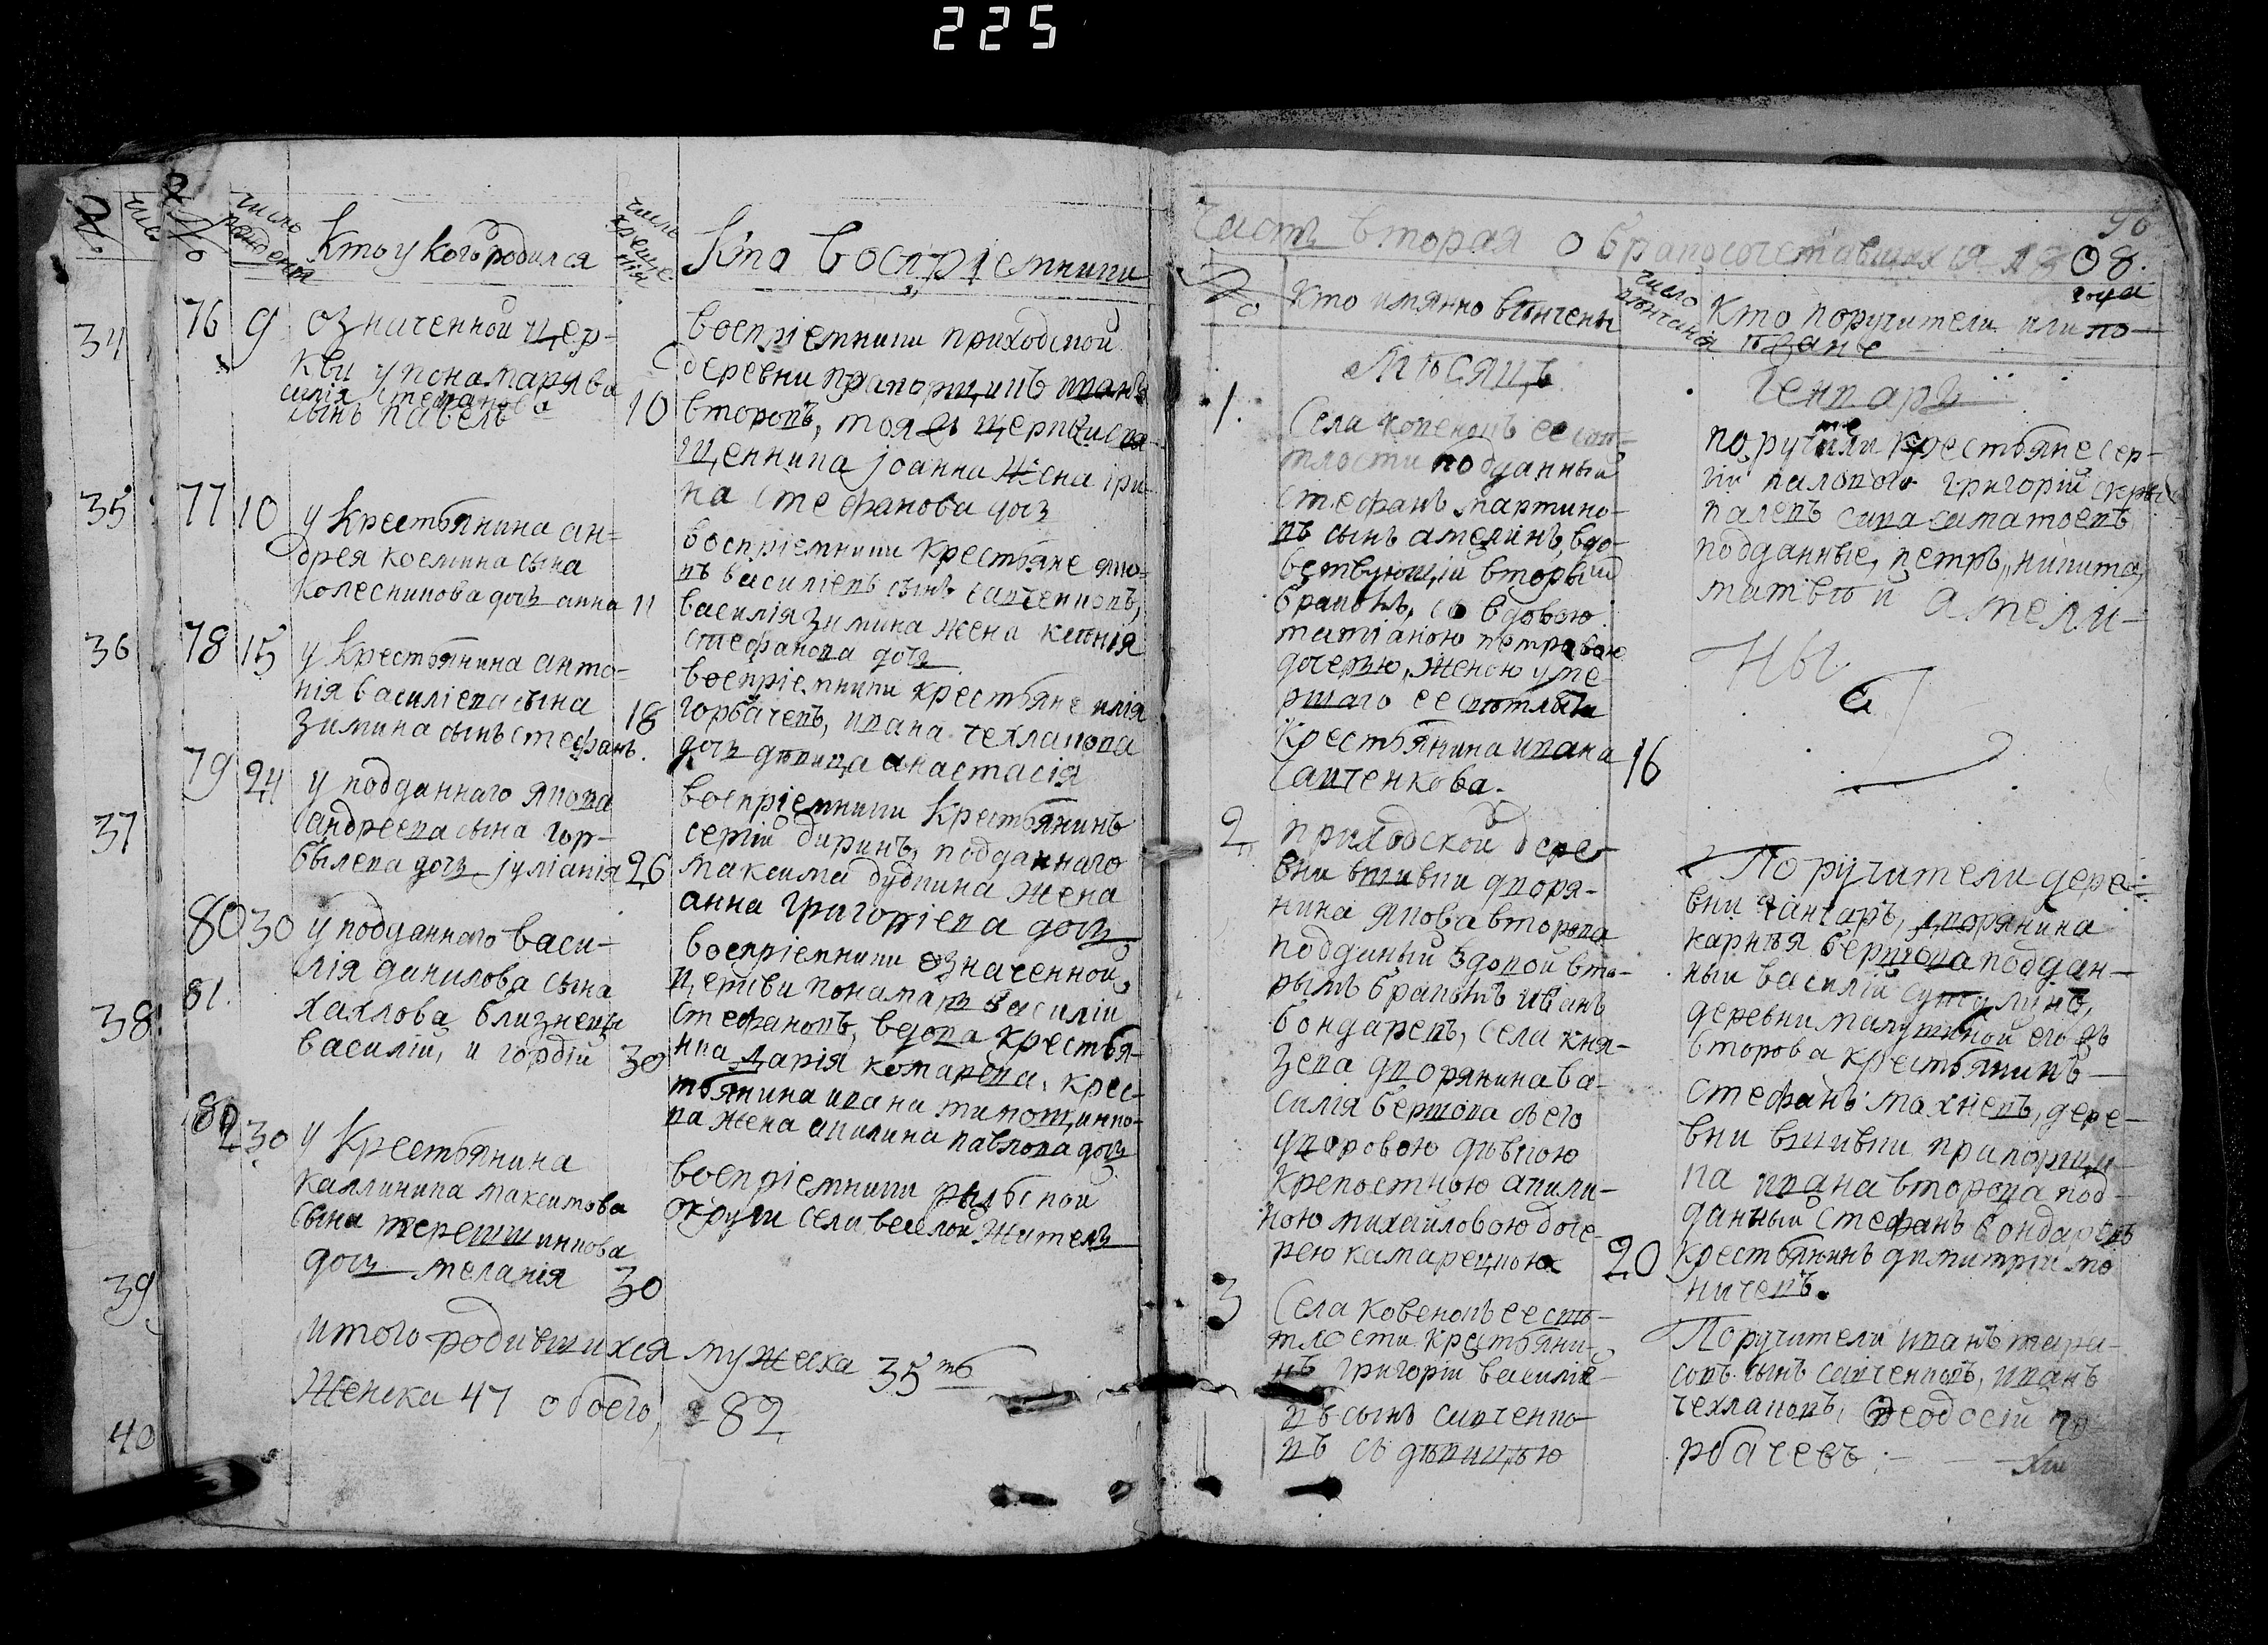 225
число рожденія
Кто у кого родился
число крещенія
Кто Воспріемники
34
76 9 означенной цер-
кви у пономаря ва
силія Стефанова
сынъ павелъ
10
воспріемники приходской
деревни прапорщикъ иванъ
второвъ, тояжъ церкви свя-
щенника іоанна жена ири-
на Стефанова дочь
35
77 10 у Крестьянина ан=
дрея космина сына
Колесникова дочь анна 11
воспріемники крестьяне яко=
въ василіевъ сынъ савченковъ,
василія зимина жена ксенія
стефанова дочь
36
78 15 у Крестьянина анто-
нія василіева сына
зимина сынъ стефанъ.
18
воспріемники крестьяне илія
горбачевъ, ивана чехланова
дочь дѣвица анастасія
79 24 у подданнаго якова
андреева сына гор-
былева дочь іуліанія 26
37
воспріемники Крестьянинъ
сергій диринъ, подданнаго
максима дудкина жена
анна григоріева дочь
80 30 у подданнаго васи-
лія данилова сына
81.
хахлова близнецы
василій, и гордій 30
38
воспріемники означенной
церкви понамарь василій
стефановъ, вдова крестья-
нка дарія комарева, крес-
тьянина ивана тимощинко-
ва жена акилина павлова дочь
82 30 у Крестьянина
каллиника максимова
сына терешшинкова
дочь меланія 30
воспріемники рыльской
округи села веселой житель
39
итого родившихся мужеска 35ть
Женска 47 обоего, 82
40
90
Часть вторая о бракосочетавшихся 1808.
года
№ Кто имянно вѣнчены
число вѣнчанія
Кто поручители или по-
ѣзане
Мѣсяцъ
Генварь
1. Села ковенокъ ее свѣт-
тлости подданный
стефанъ мартино-
въ сынъ амелинъ, вдо-
вствующій вторый
бракомъ, со вдовою
татіаною петровою
дочерью, женою уме-
ршаго ее свѣтлости
Крестьянина ивана
Савченкова. 16
поручители крестьяне сер-
гій григорій
подданные, петръ, никита,
матвѣй амели-
ны
2 приходской дере-
вни вшивки дворя-
нина якова второва
подданый вдовой вто-
рымъ бракомъ иванъ
бондаревъ, села кня-
зева дворянина ва-
силія бершова съ его
дворовою дѣвкою
крепостною акили-
ною михайловою доче-
рею камарецкою 20
Поручители дере-
вни чанчаръ, дворянина
карнѣя бершова поддан-
ный василій
деревни
второва крестьянинъ
стефанъ махневъ, дере-
вни вшивки прапорщи-
ка ивана второва под-
данный стефанъ бондаревъ
крестьянинъ димитрій мо
ничевъ.
3 Села ковенокъ ее свѣ-
тлости крестьяни-
нъ григорій василіе-
въ сынъ савченко-
въ съ дѣвицею
Поручители иванъ тара-
совъ сынъ савченковъ, иванъ
чехлановъ, Феодосій го-
рбачевъ;